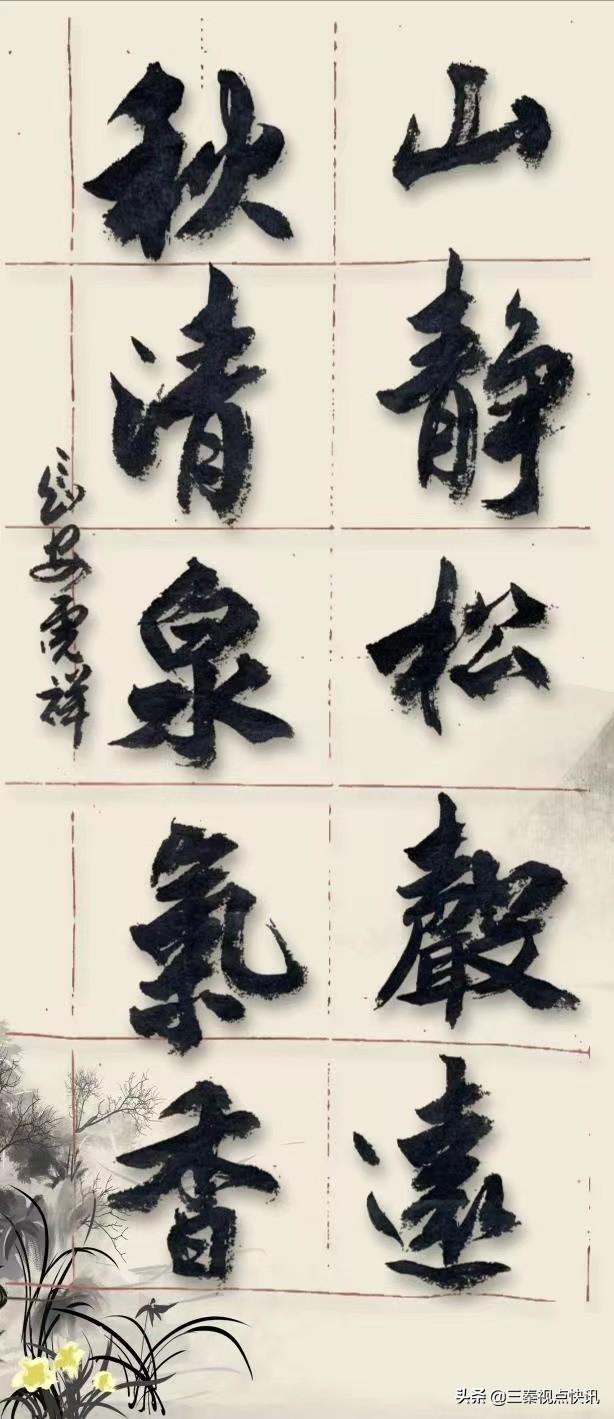 山静松聲遠
秋清泉氣香
安虎祥
头条 @三秦视点快讯